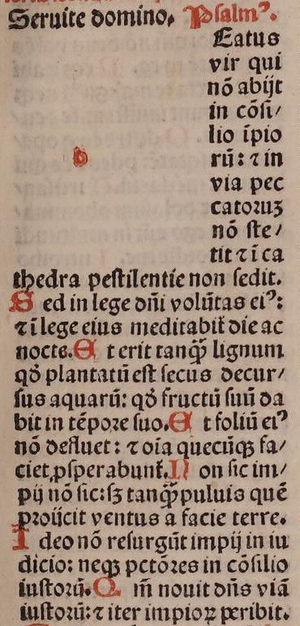 Seruite domino. Psalmꝰ.
Eatus
vir qui
nō abijt
in cōsi/
lio īpio
rū: ⁊ in
b
via pec
catoruꝫ
nō ste/
tit ⁊ ī ca
thedra pestilentie non sedit.
Sed in lege dñi volūtas eiꝰ:
⁊ ī lege eius meditabit᷑ die ac
nocte. Et erit tanqᷓꝫ lignum
qđ plantatū est secus decur/
sus aquarū: qđ fructū suū da
bit in tēpore suo. Et foliū eiꝰ
nō defluet: ⁊ oīa quecūqꝫ fa/
ciet ꝓsperabunt᷑. Non sic im/
pij nō sic: sꝫ tanqᷓꝫ puluis quē
proijcit ventus a facie terre.
Ideo nō resurgūt impij in iu
dicio: neqꝫ pctōres in cōsilio
iustorū. Qm̄ nouit dñs viā
iustorū: ⁊ iter impioꝝ peribit.